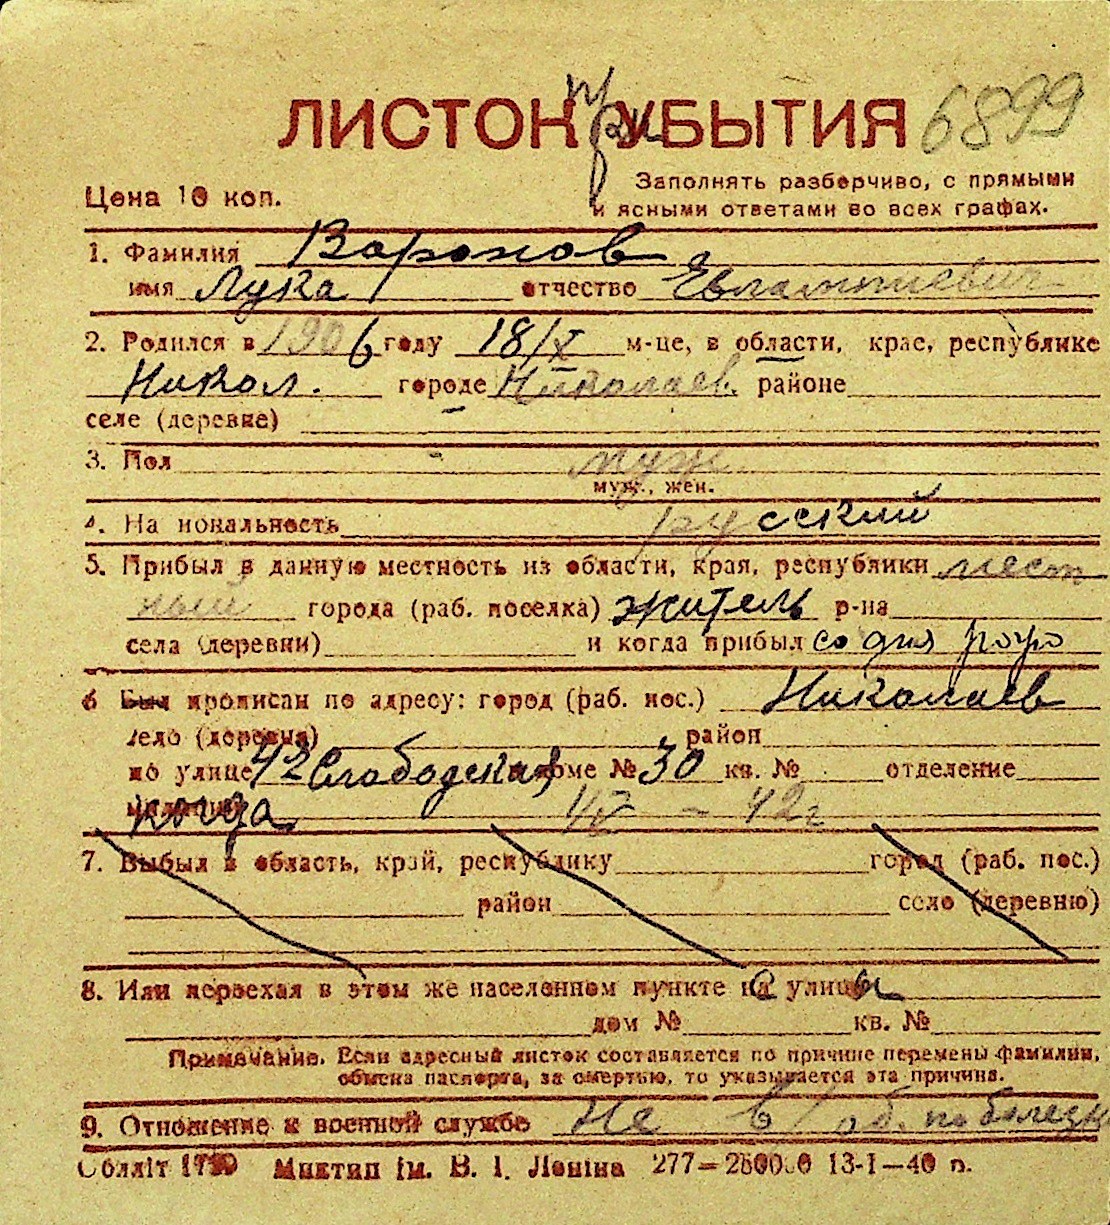 ЛИСТОК при УБЫТИЯ 6899
Цена 10 коп.
Заполнять разборчиво, с прямыми
и ясными ответами во всех графах.
1. Фамилия Воронов
имя Лука отчество Евлампиевич
2. Родился в 1906 году 18/X м-це, в области, крае, республике
Никол. городе Николаев. районе
селе (деревне)
3. Пол муж.
муж., жен.
4. На иональность русский
5. Прибыл в данную местность из области, края, республики мест
ный города (раб. поселка) житель р-на
села (деревни) и когда прибыл со дня рожд
6 Был прописан по адресу: город (раб. пос.) Николаев
село (деревня) район
по улице 42 Слободская доме № 30 кв. № отделение
когда - 42г
7. Выбыл в область, край, республику город (раб. пос.)
район село (деревню)
8. Или переехал в этом же населенном пункте с улицы
дом № кв. №
Примечание. Если адресный листок составляется по причине перемены фамилии,
обмена паспорта, за смертью, то указывается эта причина.
9. Отношение к военной службе Не в/об. по болезн
Обліт 1790 Миктип ім. В. І. Леніна 277—250000 13-I—40 р.